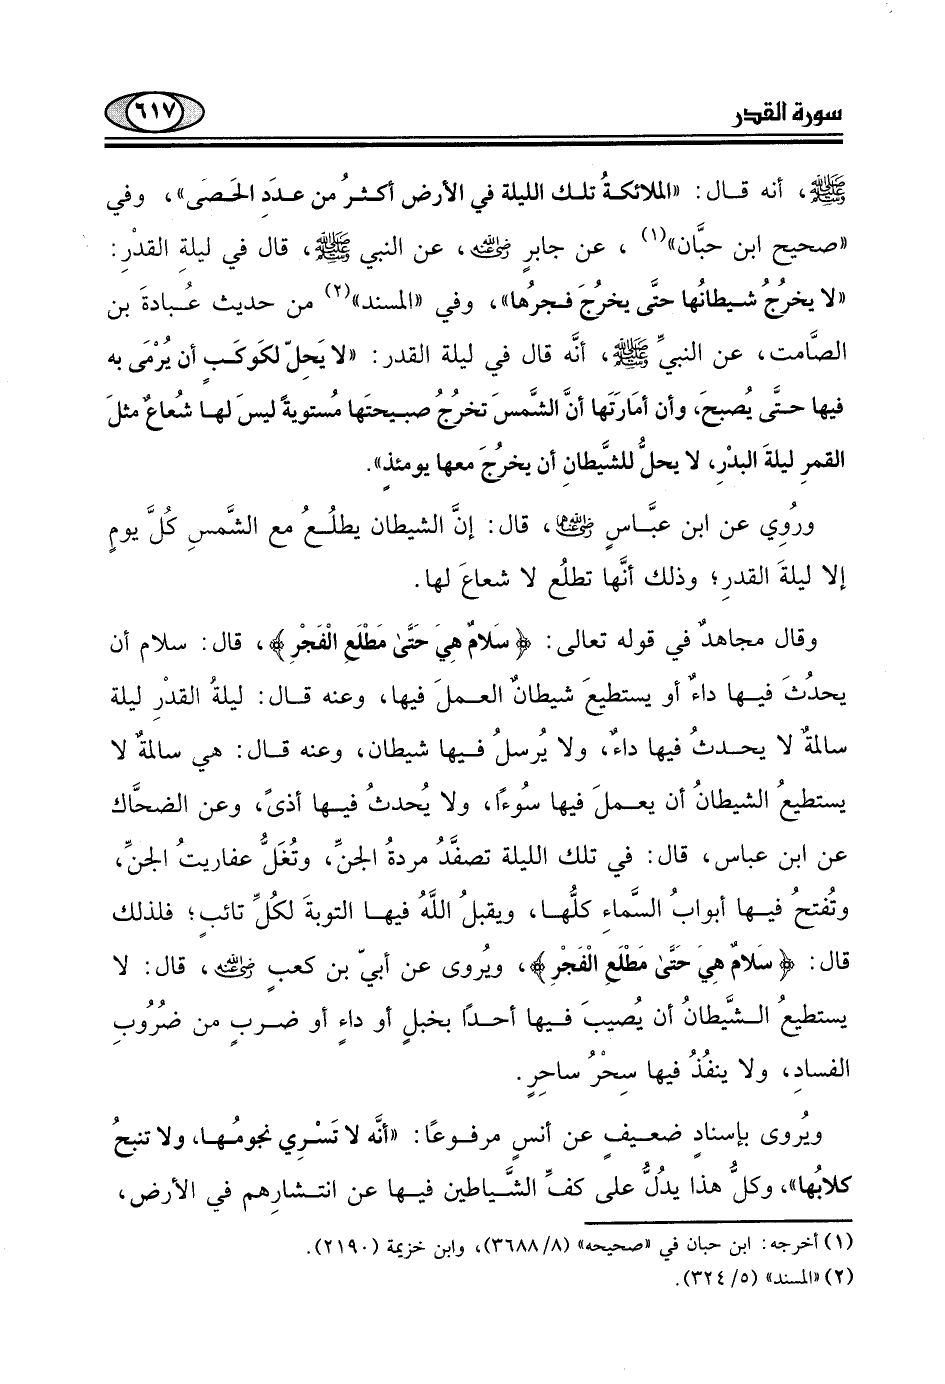 سورة القدر ٦١٧
ﷺ، أنه قال: «الملائكةُ تلك الليلة في الأرض أكثرُ من عددِ الحَصَى»، وفي
«صحيح ابن حبَّان»(١) ، عن جابرٍ رضي الله عنه، عن النبي ﷺ، قال في ليلةِ القدْرِ:
«لا يخرُجُ شيطانُها حتَّى يخرُجَ فجرُها»، وفي «المسند»(٢) من حديث عُبادةَ بن
الصَّامت، عن النبيِّ ﷺ، أنَّه قال في ليلة القدر: «لا يَحِلّ لكوكَبٍ أن يُرْمَى به
فيها حتَّى يُصبحَ، وأن أمَارَتَها أنَّ الشَّمسَ تخرُجُ صبيحتَها مُستويةً ليسَ لها شُعاعٌ مثلَ
القمرِ ليلةَ البدْرِ، لا يحلُّ للشَّيطانِ أن يخرُجَ معها يومئذٍ».
ورُوِي عن ابن عبَّاسٍ رضي الله عنهما، قال: إنَّ الشيطان يطلُعُ مع الشَّمسِ كُلَّ يومٍ
إلا ليلةَ القدرِ؛ وذلك أنَّها تطلُع لا شعاعَ لها.
وقال مجاهدٌ في قوله تعالى: ﴿سَلَامٌ هِيَ حَتَّىٰ مَطْلَعِ الْفَجْرِ﴾، قال: سلام أن
يحدُثَ فيها داءٌ أو يستطيعَ شيطانٌ العملَ فيها، وعنه قال: ليلةُ القدْرِ ليلة
سالمةٌ لا يحدثُ فيها داءٌ، ولا يُرسلُ فيها شيطان، وعنه قال: هي سالمةٌ لا
يستطيعُ الشيطانُ أن يعملَ فيها سُوءًا، ولا يُحدثُ فيها أذىً، وعن الضحَّاك
عن ابن عباس، قال: في تلك الليلة تصفَّدُ مردةُ الجنِّ، وتُغَلُّ عفاريتُ الجنِّ،
وتُفتحُ فيها أبوابُ السَّماءِ كلُّها، ويقبلُ اللَّهُ فيها التوبةَ لكُلِّ تائبٍ؛ فلذلك
قال: ﴿سَلَامٌ هِيَ حَتَّىٰ مَطْلَعِ الْفَجْرِ﴾، ويُروى عن أبيّ بن كعبٍ رضي الله عنه، قال: لا
يستطيعُ الشَّيطانُ أن يُصيبَ فيها أحدًا بخبلٍ أو داءٍ أو ضربٍ من ضُرُوبِ
الفسادِ، ولا ينفُذُ فيها سِحْرُ ساحِرٍ.
ويُروى بإسنادٍ ضعيفٍ عن أنسٍ مرفوعًا: «أنَّه لا تَسْرِي نجومُها، ولا تنبحُ
كلابُها»، وكلُّ هذا يدلُّ على كفِّ الشَّياطين فيها عن انتشارهم في الأرض،
(١) أخرجه: ابن حبان في «صحيحه» (٣٦٨٨/٨)، وابن خزيمة (٢١٩٠).
(٢) «المسند» (٣٢٤/٥).